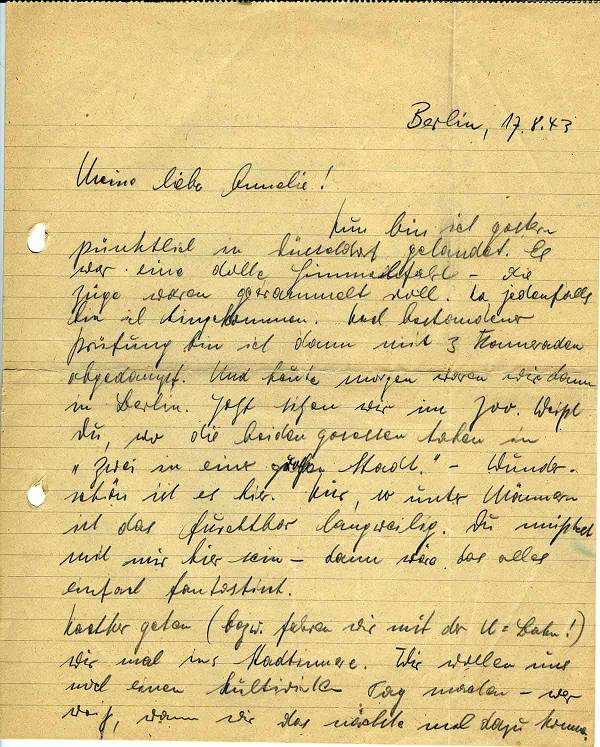 Berlin, 17.8.43
Meine liebe Annelie!
Nun bin ich gestern
pünktlich in Düsseldorf gelandet. Es
war eine dolle Himmelfahrt – die
Züge waren gerammelt voll. Na jedenfalls
bin ich hingekommen. Nach bestandener
Prüfung bin ich dann mit 3 Kameraden
abgedampft. Und heute morgen waren wir dann
in Berlin. Jetzt sitzen wir im Zoo. Weißt
Du, wo die beiden gesessen haben in
"Zwei in einer großen Stadt." – Wunder-
schön ist es hier. Nur, so unter Männern
ist das furchtbar langweilig. Du müßtest
mit mir hier sein – dann wäre das alles
einfach fantastisch.
Nachher gehen (bezw. fahren wir mit der U=Bahn!)
wir mal ins Stadtinnere. Wir wollen uns
noch einen Tag machen – wer
weiß, wann wir das nächste mal dazu komm.